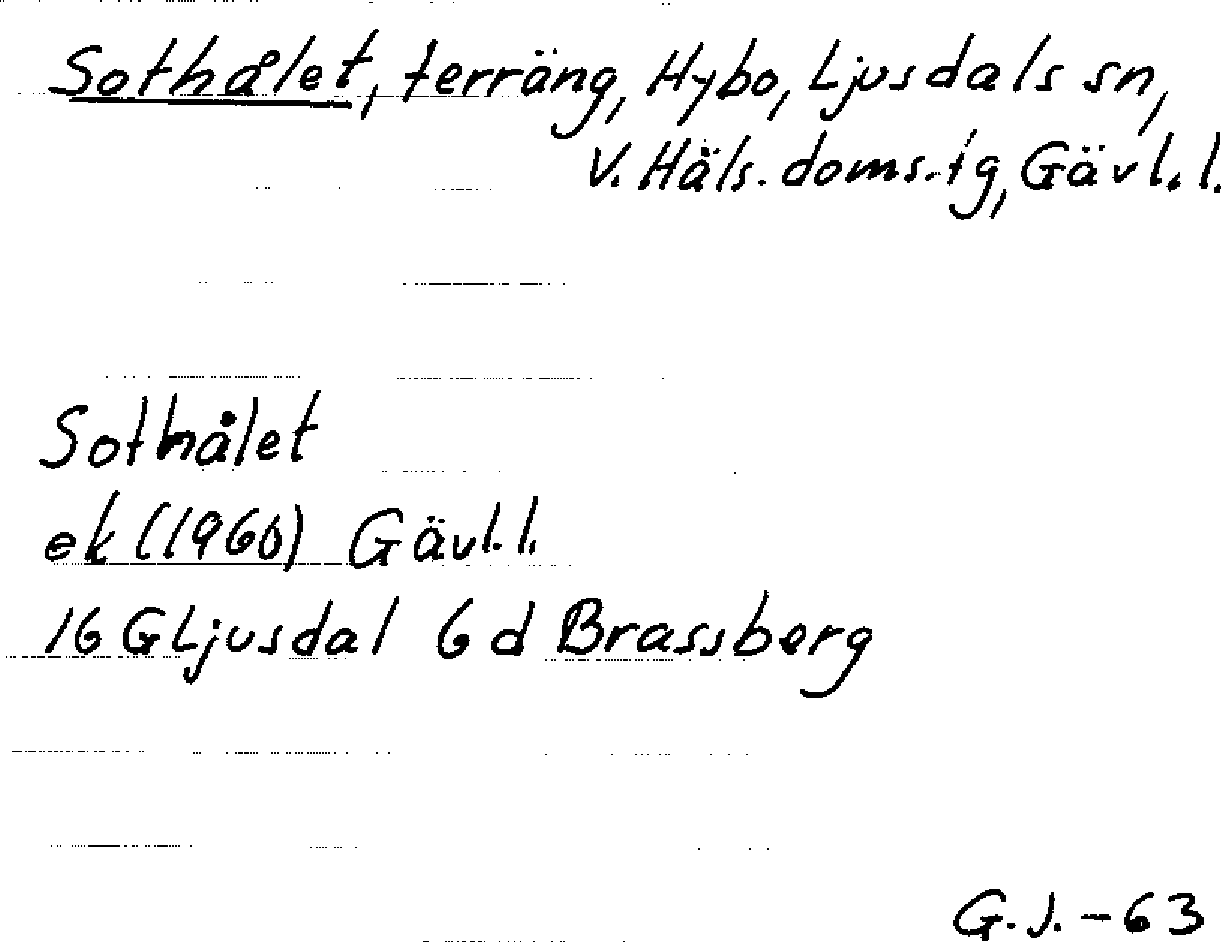 Sothålet, terräng, Hybo, Ljusdals sn,
V. Häls. doms.tg, Gävl. l.
Sothålet
ek (1960) Gävl. l.
16 G Ljusdal 6 d Brassberg
G. J. - 63